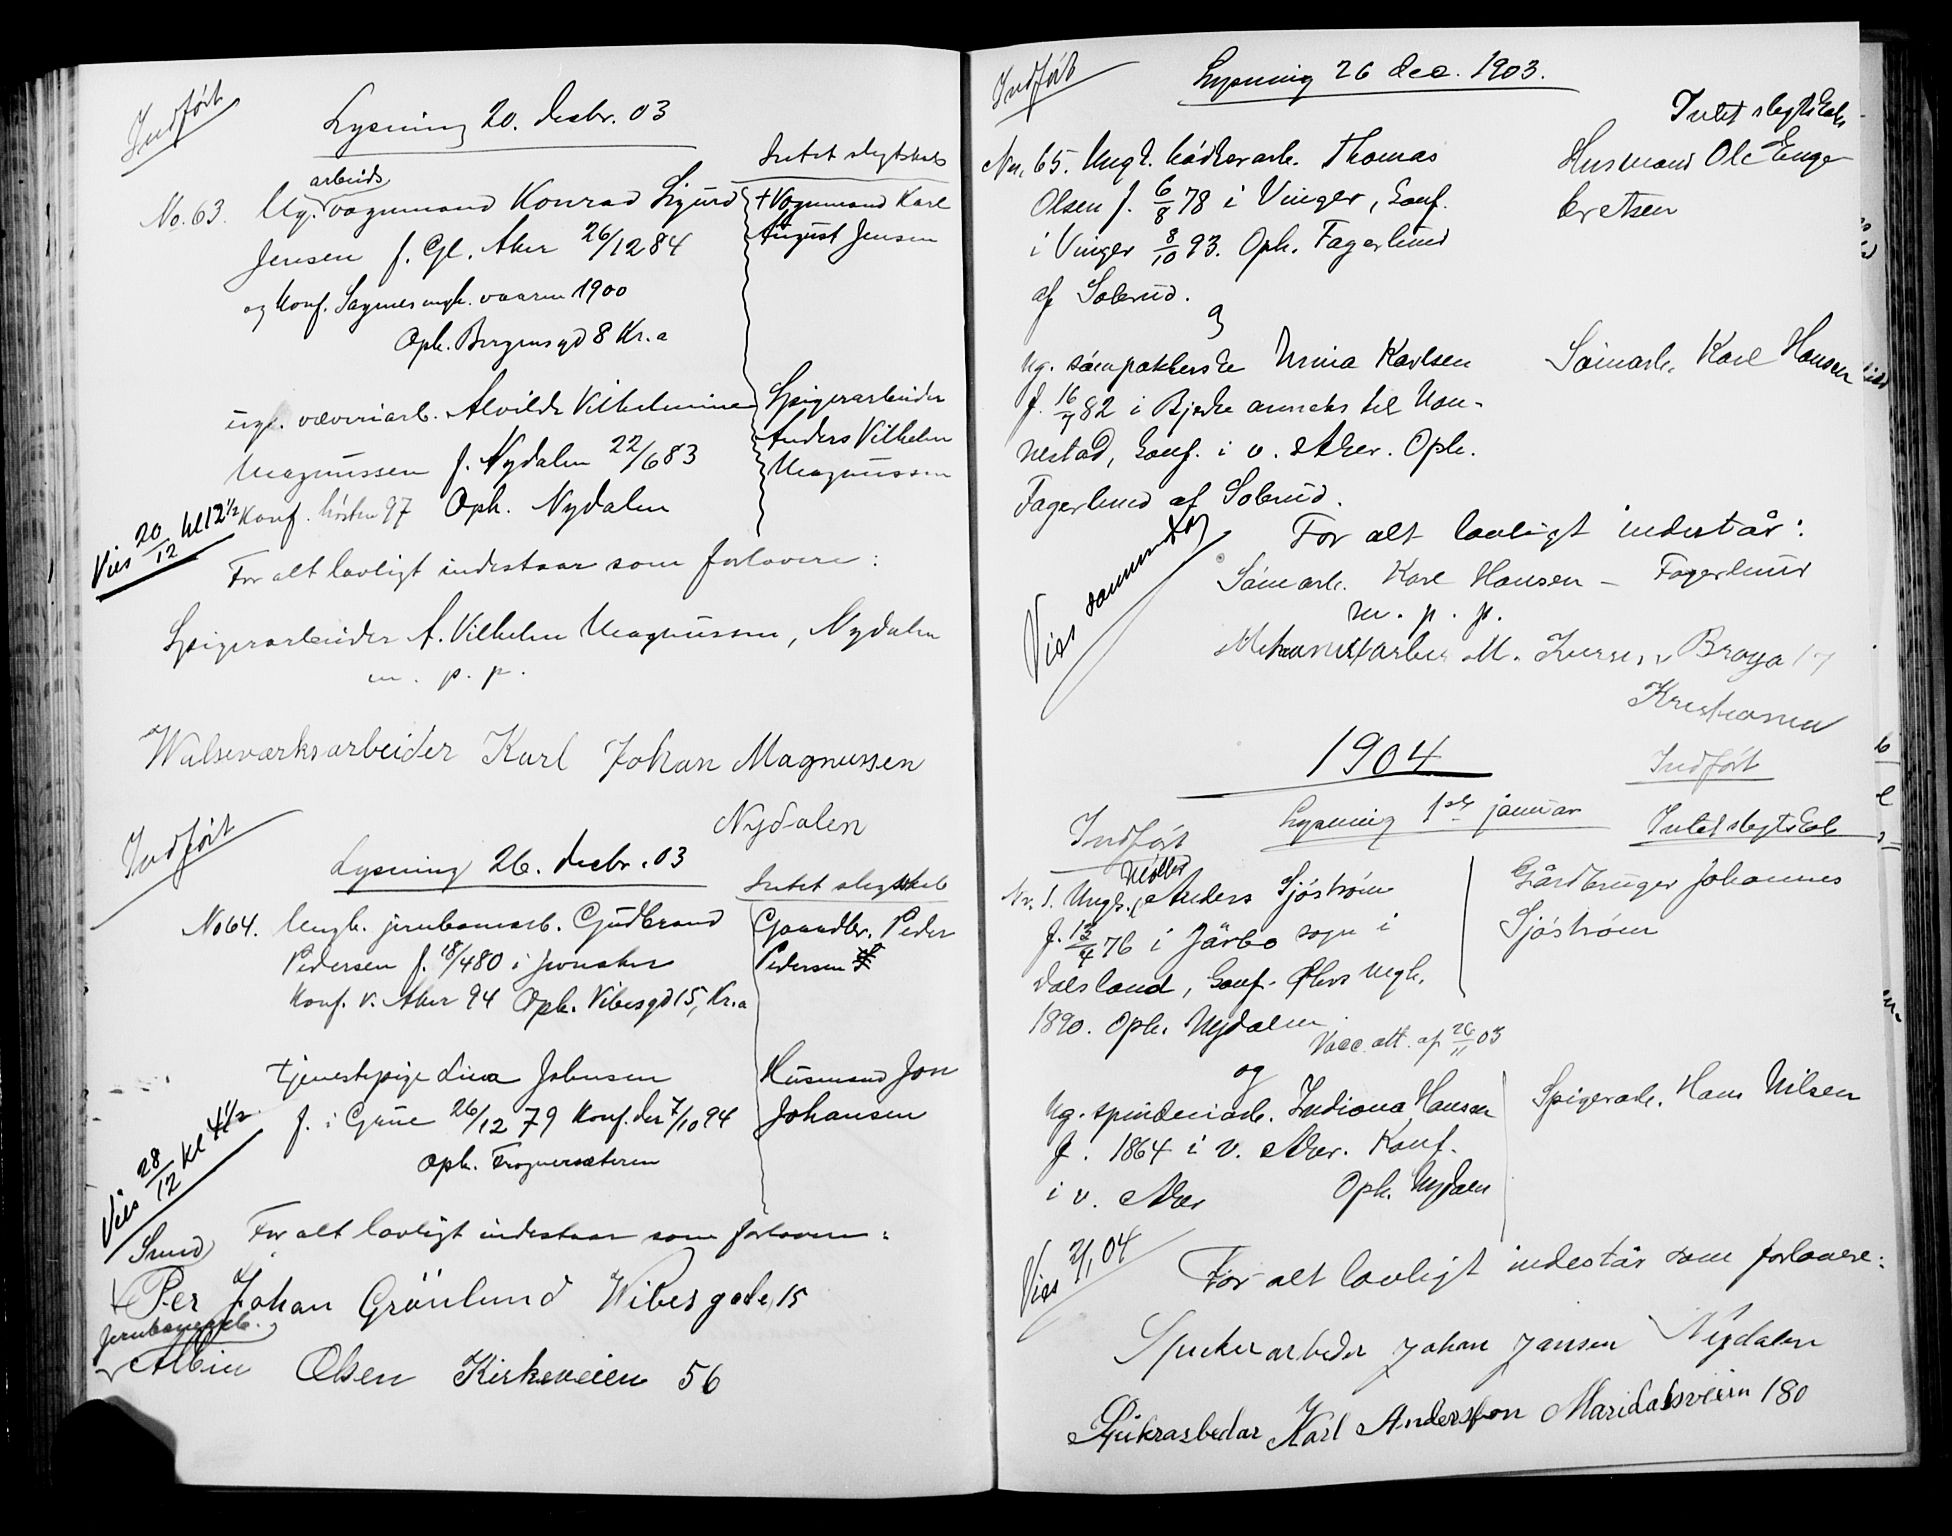 Indført
Lysning 20. decbr. 03
Intet slegtskab
arbeids
No. 63. Ug. vognmand Konrad Sigurd
+ Vognmand Karl
Jensen f. Gl. Aker 26/12 84
August Jensen
og konf. Sagenes mgh. vaaren 1900
Oph. Bergensgd 8 Kr.a
ugk. væveriarb. Alvilde Vilhelmine
Spigerarbeider
Magnussen f. Nydalen 22/6 83
Anders Vilhelm
Magnussen
konf. høsten 97 Oph. Nydalen
Vies 20/12 kl 12 1/2
For alt lovligt indestaar som forlovere:
Spigerarbeider A. Vilhelm Magnussen, Nydalen
m. p. p.
Walseværksarbeider Karl Johan Magnussen
Nydalen
Indført
Lysning 26. decbr. 03
Intet slegtskab
No 64. Ungk. jernbanearb. Gudbrand
Gaardbr. Peder
Pedersen f. 18/4 80 i Jevnaker
Pedersen
Konf. v. Aker 94 Oph. Vibesgd 15, Kr.a
Tjenestepige Lina Johnsen
Husmand Jon
f. i Grue 26/12 79 Konf. der 7/10 94
Johansen
Oph. Frognersæteren
Vies 28/12 kl 4 1/2
For alt lovligt indestaar som forlovere:
Smed
Per Johan Grönlund Wibesgade, 15
Jernbanearb.
Albin Olsen Kirkeveien 56
Indført
Lysning 26 dec. 1903.
Intet slegtskab
No. 65. Ungk. bødkerarb. Thomas
Husmand Ole Enge-
Olsen f. 6/8 78 i Vinger, konf.
bretsen
i Vinger 8/10 93. Oph. Fagerlund
af Solerud.
og
Ug. sømpakkerske Mina Karlsen
Sømarb. Karl Hansen
f. 16/7 82 i Bjerke anneks til Nan-
nestad, konf. i v. Aker. Oph.
Fagerlund af Solerud.
Vies samme dag
For alt lovligt indestår:
Sømarb. Karl Hansen – Fagerlund
m. p. p.
M. Iversen Braga 17
Kristiania
1904
Indført
Indført
Lysning 1ste januar
Intet slegtskab
Møller
Nr. 1. Ungk. Anders Sjöström
Gårdbruger Johannes
f. 13/4 76 i Järbo sogn i
Sjöström
Dalsland, konf. Øhrs mgh.
1890. Oph. Nydalen.
Vacc. att. af 26/11 03
og
Ug. spinderiarb. Indiana Hansen
Spigerarb. Hans Nilsen
f. 1864 i v. Aker. Konf.
i v. Aker Oph. Nydalen
Vies 2/1 04
For alt lovligt indestår som forlovere:
arbeder Johan Jansen Nydalen
Karl Andersson Maridalsveien 180